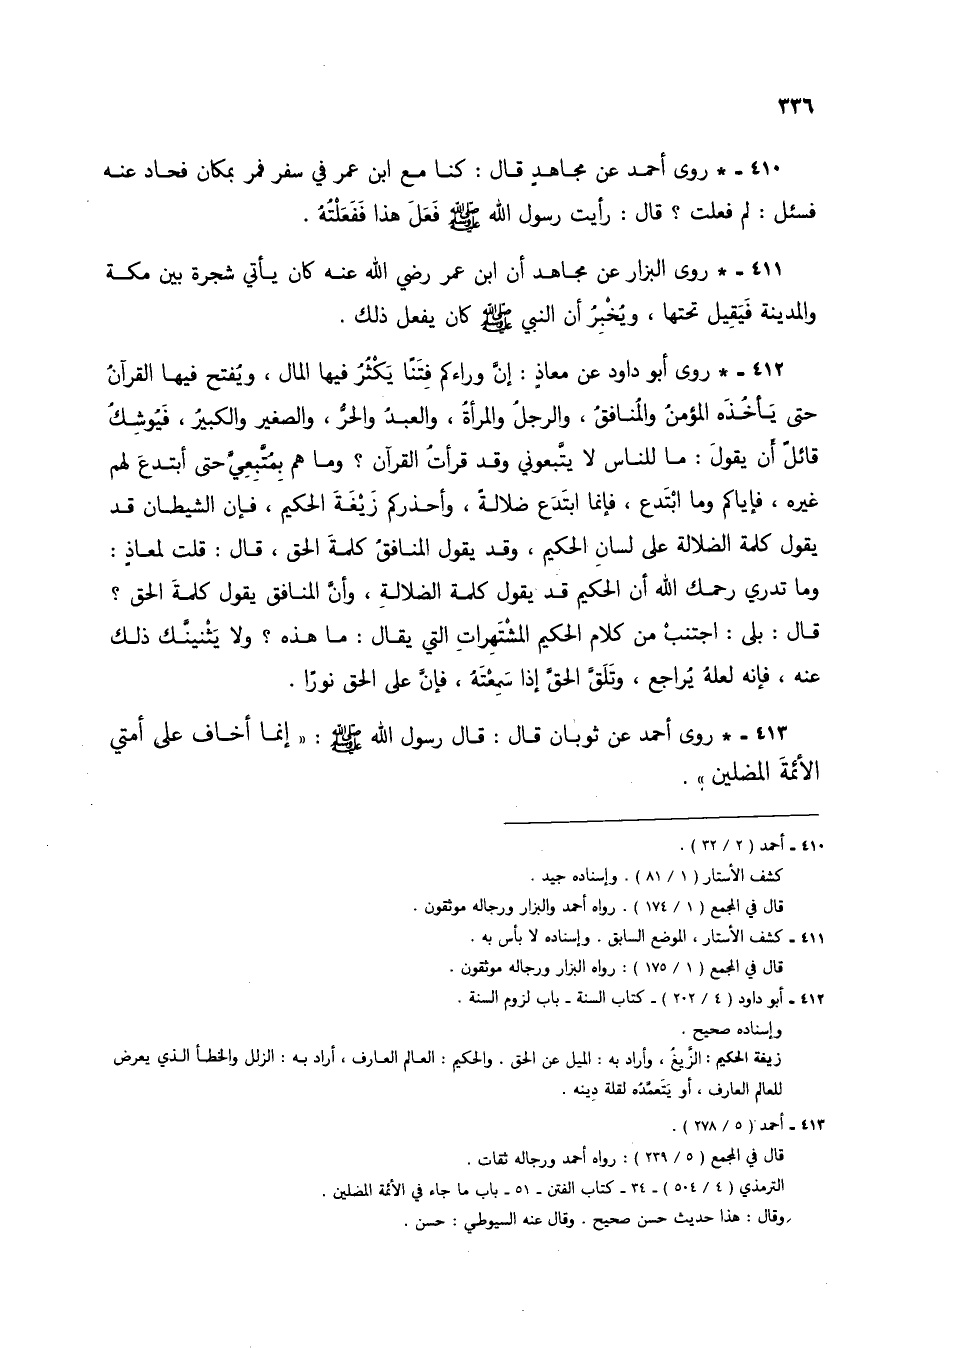 ٣٣٦
٤١٠ - * روى أحمد عن مجاهدٍ قال : كنا مع ابن عمر في سفر فمر بمكان فحاد عنه
فسئل : لم فعلت ؟ قال : رأيت رسول الله ﷺ فَعَلَ هذا ففَعَلْتُهُ .
٤١١ - * روى البزار عن مجاهد أن ابن عمر رضي الله عنه كان يأتي شجرة بين مكة
والمدينة فَيَقِيل تحتها ، ويُخْبِرُ أن النبي ﷺ كان يفعل ذلك .
٤١٢ - * روى أبو داود عن معاذٍ : إنَّ وراءكم فِتَنًا يَكْثُرُ فيها المال ، ويُفتح فيها القرآنُ
حتى يَأخُذَه المؤمنُ والمُنافقُ ، والرجلُ والمرأةُ ، والعبدُ والحرُّ ، والصغير والكبيرُ ، فَيُوشِكُ
قائلٌ أن يقولَ : ما للناس لا يتَّبعوني وقد قرأتُ القرآن ؟ وما هم بِمُتَّبِعِيَّ حتى أبتدعَ لهم
غيره ، فإياكم وما ابْتَدع ، فإنما ابتَدَع ضلالةً ، وأحذركم زَيْغَةَ الحكيم ، فإن الشيطان قد
يقول كلمة الضلالة على لسانِ الحكيم ، وقد يقول المنافقُ كلمةَ الحق ، قال : قلت لمعاذٍ :
وما تدري رحمك الله أن الحكيم قد يقول كلمة الضلالةِ ، وأنَّ المنافق يقول كلمةَ الحق ؟
قال : بلى : اجتنبْ من كلام الحكيم المشْتَهِراتِ التي يقال : ما هذه ؟ ولا يَثْنِينَّك ذلك
عنه ، فإنه لعلهُ يُراجع ، وتَلَقَّ الحقَّ إذا سَمِعْتَهُ ، فإنَّ على الحق نورًا .
٤١٣ - * روى أحمد عن ثوبان قال : قال رسول الله ﷺ : « إنما أخاف على أمتي
الأئمةَ المضلين » .
٤١٠ - أحمد ( ٢ / ٣٢ ) .
كشف الأستار ( ١ / ٨١ ) . وإسناده جيد .
قال في المجمع ( ١ / ١٧٤ ) . رواه أحمد والبزار ورجاله موثقون .
٤١١ - كشف الأستار ، الموضع السابق . وإسناده لا بأس به .
قال في المجمع ( ١ / ١٧٥ ) : رواه البزار ورجاله موثقون .
٤١٢ - أبو داود ( ٤ / ٢٠٢ ) - كتاب السنة - باب لزوم السنة .
وإسناده صحيح .
زيغة الحكيم : الزَّيغُ ، وأراد به : الميل عن الحق . والحكيم : العالم العارف ، أراد به : الزلل والخطأ الذي يعرض
للعالم العارف ، أو يَتَعمَّدُه لقلة دينه .
٤١٣ - أحمد ( ٥ / ٢٧٨ ) .
قال في المجمع ( ٥ / ٢٣٩ ) : رواه أحمد ورجاله ثقات .
الترمذي ( ٤ / ٥٠٤ ) - ٣٤ - كتاب الفتن - ٥١ - باب ما جاء في الأئمة المضلين .
وقال : هذا حديث حسن صحيح . وقال عنه السيوطي : حسن .